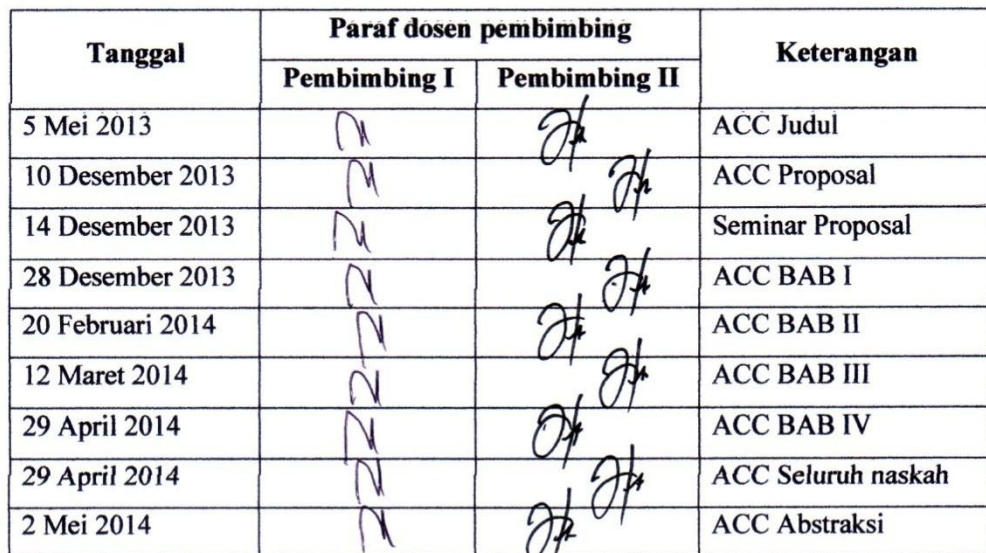 Tanggal
Paraf dosen pembimbing
Keterangan
Pembimbing I
Pembimbing II
5 Mei 2013
ACC Judul
10 Desember 2013
ACC Proposal
14 Desember 2013
Seminar Proposal
28 Desember 2013
ACC BAB I
20 Februari 2014
ACC BAB II
12 Maret 2014
ACC BAB III
29 April 2014
ACC BAB IV
29 April 2014
ACC Seluruh naskah
2 Mei 2014
ACC Abstraksi